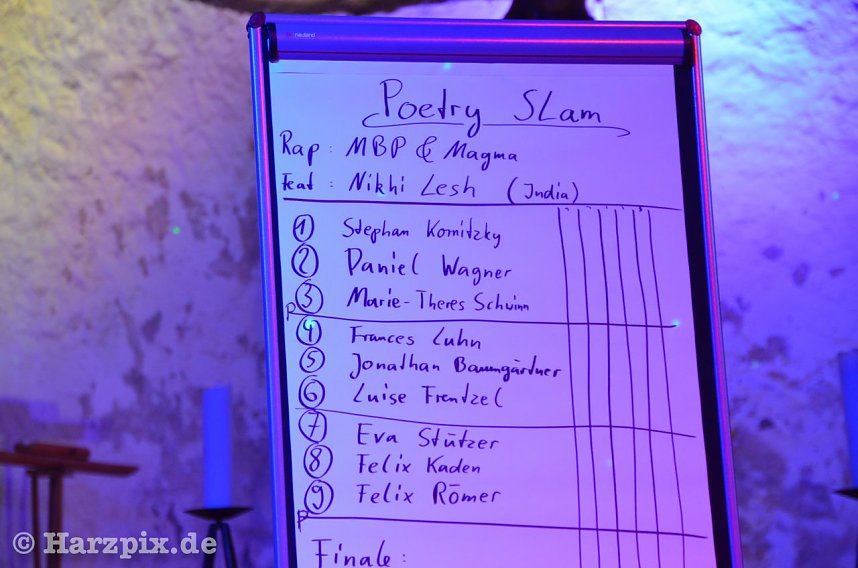 neuland
Poetry SLam
Rap : MBP & Magma
Feat : Nikhi Lesh (India)
1 Stephan Kornitzky
2 Daniel Wagner
3 Marie-Theres Schwinn
P
4 Frances Luhn
5 Jonathan Baumgärtner
6 Luise Frentzel
7 Eva Stützer
8 Felix Kaden
9 Felix Römer
P
Finale :
© Harzpix.de